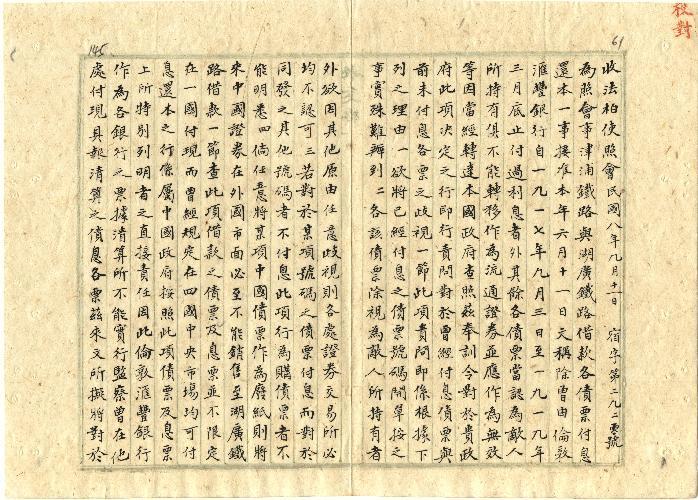 校對
61
收法柏使照會民國八年九月十一日 宿字第二九二零號
為照會事津浦鐵路與湖廣鐵路借款各債票付息
還本一事接准本年六月十一日文稱除曾由倫敦
滙豐銀行自一九一七年九月三日至一九一九年
三月底止付過利息者外其餘各債票當認為敵人
所持有俱不能轉移作為流通證券並應作為無效
等因當經轉達本國政府查照茲奉訓令對於貴政
府此項決定之行即行責問對於曾經付息債票與
前未付息各票之歧視一節此項責問即係根據下
列之理由一欲將已經付息之債票號碼開單按之
事實殊難辦到二各該債票除視為敵人所持有者
145
外欲因其他原由任意歧視則各處證券交易所必
均不認可三若對於某項號碼之債票付息而對於
同發之其他號碼者不付息此項行為購債票者不
能明悉四倘任意將某項中國債票作為廢紙則將
來中國證券在外國市面必至不能銷售至湖廣鐵
路借款一節查此項借款之債票及息票並不限定
在一國付現而曾經規定在四國中央市場均可付
息還本之行係屬中國政府按照此項債票及息票
上所特別列明者之直接責任因此倫敦滙豐銀行
作為各銀行之票據清算所不能實行監察曾在他
處付現具報清算之債息各票茲來文所擬將對於